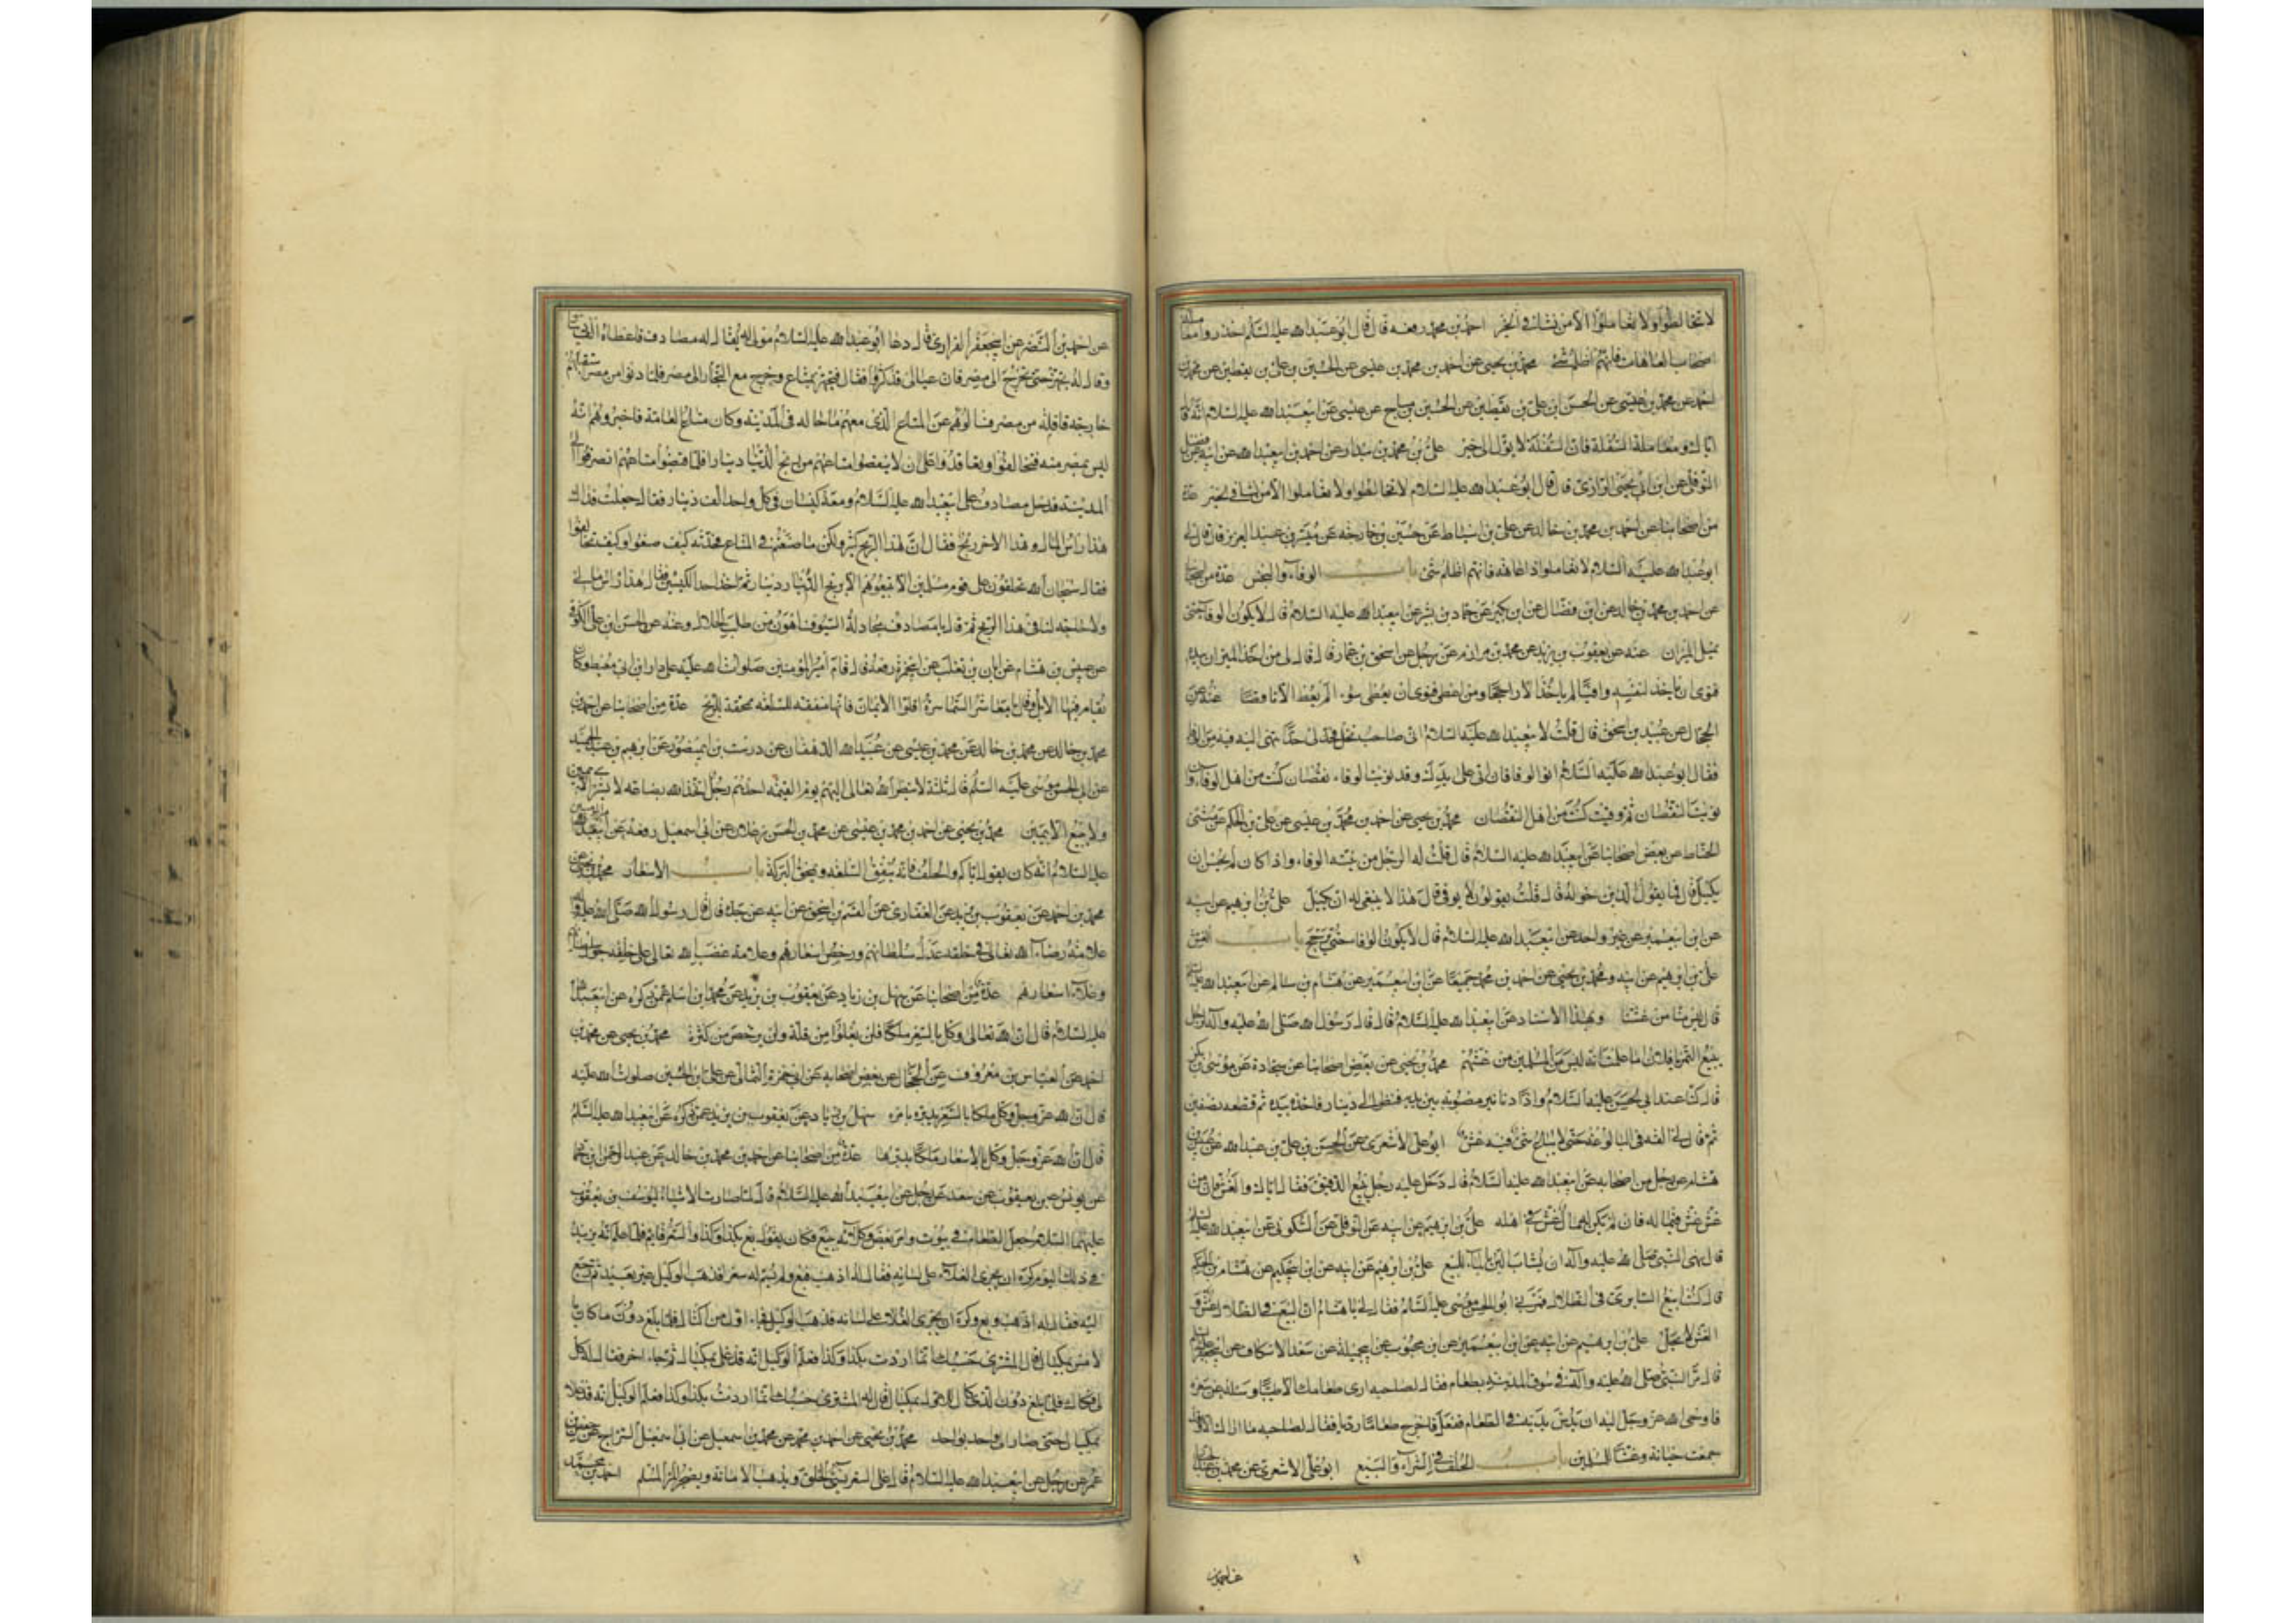 لا تخالطوا ولا تعاملوا الا من نشا في الخير احمد بن محمد رفعه قال قال ابو عبدالله عليه السلم احذروا معاملة
اصحاب العاهات فانهم اظلم شئ محمد بن يحيى عن احمد بن محمد بن عيسى عن الحسين بن على بن يقطين عن محمد بن
احمد عن محمد بن عيسى عن الحسن ابن على بن يقطين عن الحسين بن مياح عن عيسى عن ابيعبدالله عليه السلام انه قا
اياك ومعاملة السفلة فان السفلة لا يؤل الى خير على بن محمد بن بندار عن احمد بن ابيعبدالله عن ابيه عن فضل
النوفلي عن ابن ابى يحيى الرازى قال قال ابو عبدالله عليه السلام لا تخالطوا ولا تعاملوا الا من نشا في خير عدة
من اصحابنا عن احمد بن محمد بن خالد عن على بن اسباط عن حسين بن خارجة عن ميسر بن عبد العزيز قال قال لى
ابو عبدالله عليه السلام لا تعاملوا ذا عاهة فانهم اظلم شئ باب الوفاء والبخس عدة من اصحابنا
عن احمد بن محمد بن خالد عن ابن فضال عن ابن بكير عن حماد بن بشير عن ابيعبدالله عليه السلام قال لا يكون الوفاء حتى
يميل الميزان عنه عن يعقوب بن يزيد عن محمد بن مرازم عن رجل عن اسحق بن عمار قال قال من اخذ الميزان بيده
فنوى ان ياخذ لنفسه وافيا لم ياخذ الا راجحا ومن اعطى فنوى ان يعطى سواء لم يعط الا ناقصا عنه عن
الحجال عن عبيد بن اسحق قال قلت لابيعبدالله عليه السلام انى صاحب نخل فخبرنى بحد انتهى اليه فيه من الوفاء
فقال ابو عبدالله عليه السلام انو الوفا فان اتى على يدك وقد نويت الوفاء نقصان كنت من اهل الوفاء وان
نويت النقصان ثم وفيت كنت من اهل النقصان محمد بن يحيى عن احمد بن محمد بن عيسى عن على بن الحكم عن مثنى
الحناط عن بعض اصحابنا عن ابيعبدالله عليه السلام قال قلت له الرجل من نيته الوفاء واذا كال لم يحسن ان
يكيل قال فما يقول الذين حوله قال قلت يقولون لا يوفى قال هذا لا ينبغى له ان يكيل على بن ابرهيم عن ابيه
عن ابن ابيعمير عن غير واحد عن ابيعبدالله عليه السلام قال لا يكون الوفا حتى يرجح باب الغش
على بن ابرهيم عن ابيه ومحمد بن يحيى عن احمد بن محمد جميعا عن ابن ابيعمير عن هشام بن سالم عن ابيعبدالله عليه السلم
قال ليس منا من غشنا وبهذا الاسناد عن ابيعبدالله عليه السلام قال قال رسول الله صلى الله عليه وآله لرجل
يبيع التمر يا فلان اما علمت انه ليس من المسلمين من غشهم محمد بن يحيى عن بعض اصحابنا عن سجادة عن موسى بن بكر
قال كنا عند ابى الحسن عليه السلام واذا دنانير مصبوبة بين يديه فنظر الى دينار فاخذه بيده ثم قطعه بنصفين
ثم قال لى القه في البالوعة حتى لا يباع شئ فيه غش ابو على الاشعرى عن الحسن بن على بن عبدالله عن عبيس بن
هشام عن رجل من اصحابه عن ابيعبدالله عليه السلام قال دخل عليه رجل يبيع الدقيق فقال اياك والغش فان من
غش غش في ماله فان لم يكن له مال غش في اهله على بن ابرهيم عن ابيه عن النوفلي عن السكونى عن ابيعبدالله عليه السلم
قال نهى النبى صلى الله عليه وآله ان يشاب اللبن بالماء للبيع على بن ابرهيم عن ابيه عن ابن ابيعمير عن هشام بن الحكم
قال كنت ابيع السابرى في الظلال فمر بى ابو الحسن موسى عليه السلام فقال لى يا هشام ان البيع في الظلال غش و
الغش لا يحل على بن ابرهيم عن ابيه عن ابن ابيعمير عن ابن محبوب عن ابيجميلة عن سعد الاسكاف عن ابيجعفر عليه السلم
قال مر النبى صلى الله عليه وآله في سوق المدينة بطعام فقال لصاحبه ارى طعامك الا طيبا وساله عن سعره
فاوحى الله عز وجل اليه ان يدس يديه في الطعام ففعل فاخرج طعاما رديا فقال لصاحبه ما اراك الا وقد
جمعت خيانة وغشا للمسلمين باب الحلف في الشراء والبيع ابو على الاشعرى عن محمد بن عبدالجبار
عن احمد بن
عن احمد بن النضر عن ابيجعفر الفزارى قال دعا ابو عبدالله عليه السلام مولى له يقال له مصادف فاعطاه الف دينار
وقال له تجهز حتى تخرج الى مصر فان عيالى قد كثروا فقال فتجهز بمتاع وخرج مع التجار الى مصر فلما دنوا من مصر استقبلتهم
خارجه قافلة من مصر فسالوهم عن المتاع الذى معهم ما حاله في المدينة وكان متاع العامة فاخبروهم انه
ليس بمصر منه فتحالفوا وتعاقدوا على ان لا ينقصوا متاعهم من ربح الدينار دينارا فلما قبضوا متاعهم انصرفوا الى
المدينة فدخل مصادف على ابيعبدالله عليه السلام ومعه كيسان في كل واحد الف دينار فقال جعلت فداك
هذا راس المال وهذا الاخر ربح فقال ان هذا الربح كثير ولكن ما صنعتم في المتاع فحدثه كيف صنعوا وكيف تحالفوا
فقال سبحان الله تحلفون على قوم مسلمين الا تبيعوهم الا بربح الدينار دينارا ثم اخذ احد الكيسين فقال هذا راس مالى
ولا حاجة لنا في هذا الربح ثم قال يا مصادف مجادلة السيوف اهون من طلب الحلال وعنه عن الحسن ابن على الكوفى
عن عبيس بن هشام عن ابان بن تغلب عن ابيحمزة رفعه قال قام امير المؤمنين صلوات الله عليه على دار ابن ابى معيط وكان
تقام فيها الابل فقال يا معاشر السماسرة اقلوا الايمان فانها منفقة للسلعة ممحقة للربح عدة من اصحابنا عن احمد بن
محمد بن خالد عن محمد بن خالد عن محمد بن عيسى عن عبيد الله الدهقان عن درست بن ابيمنصور عن ابرهيم بن عبد الحميد
عن ابى الحسن موسى عليه السلم قال ثلثة لا ينظر الله تعالى اليهم يوم القيمة احدهم رجل اتخذ الله بضاعة لا يشترى الا بيمين
ولا يبيع الا بيمين محمد بن يحيى عن احمد بن محمد بن عيسى عن محمد بن الحسن زعلان عن ابى اسمعيل رفعه عن ابيعبدالله
عليه السلام انه كان يقول اياكم والحلف فانه ينفق السلعة ويمحق البركة باب الاسعار محمد بن يحيى عن
محمد بن احمد عن يعقوب بن يزيد عن الغفارى عن القسم بن اسحق عن ابيه عن جده قال قال رسول الله صلى الله عليه وآله
علامة رضاء الله تعالى في خلقه عدل سلطانهم ورخص اسعارهم وعلامة غضب الله تعالى على خلقه جور سلطانهم
وغلاء اسعارهم عدة من اصحابنا عن سهل بن زياد عن يعقوب بن يزيد عن محمد ابن اسلم عمن ذكره عن ابيعبدالله
عليه السلام قال ان الله تعالى وكل بالسعر ملكا فلن يغلوا من قلة ولن يرخص من كثرة محمد بن يحيى عن محمد بن
احمد عن العباس بن معروف عن الحجال عن بعض اصحابه عن ابى حمزة الثمالى عن على ابن الحسين صلوات الله عليه
قال ان الله عز وجل وكل ملكا بالسعر يدبره بامره سهل بن زياد عن يعقوب بن يزيد عمن ذكره عن ابيعبدالله عليه السلم
قال ان الله عز وجل وكل بالاسعار ملكا يدبرها عدة من اصحابنا عن احمد بن محمد بن خالد عن عبد الرحمن ابن حماد
عن يونس بن يعقوب عن سعد عن رجل عن ابيعبدالله عليه السلام قال لما صارت الاشياء ليوسف بن يعقوب
عليهما السلام جعل الطعام في بيوت وامر بعض وكلائه يبيع فكان يقول بع بكذا وكذا والسعر قائم فلما علم انه يزيد
في ذلك اليوم كره ان يجرى الغلاء على لسانه فقال له اذهب فبع ولم يسم له سعرا فذهب الوكيل غير بعيد ثم رجع
اليه فقال له اذهب وبع وكره ان يجرى الغلاء على لسانه فذهب الوكيل فجاء اول من اكتال فلما بلغ دون ما كان
لامس بمكيال قال المشترى حسبك انما اردت بكذا وكذا فعلم الوكيل انه قد غلى بمكيال ثم جاء اخر فقال له كل
لى فكال فلما بلغ دون الذى كال للاول بمكيال قال له المشترى حسبك انما اردت بكذا وكذا فعلم الوكيل انه قد غلا
بمكيال حتى صار الى واحد بواحد محمد بن يحيى عن احمد بن محمد عن محمد بن اسمعيل عن ابى اسمعيل السراج عن حفص بن
عمر عن رجل عن ابيعبدالله عليه السلام قال غلى السعر يسئ الخلق ويذهب الامانة ويضجر المرء المسلم احمد بن محمد